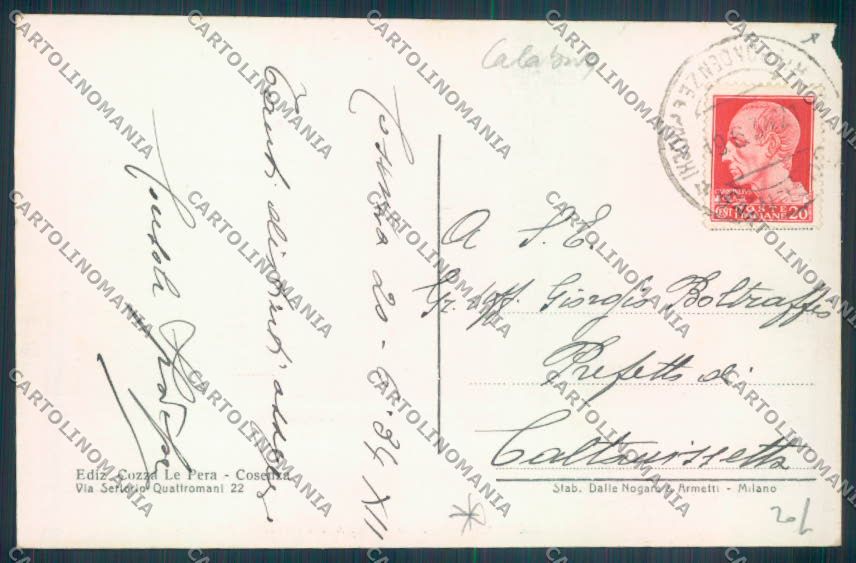 Calabria
Cosenza 20-6-34 XII
Tanti distinti ossequi
A S. E.
Gr. Uff. Giorgio Boltraffio
Prefetto di
Caltanissetta
POSTE ITALIANE 20
Ediz. Cozza Le Pera - Cosenza
Via Sertorio Quattromani 22
Stab. Dalle Nogare & Armetti - Milano
20/
CARTOLINOMANIA